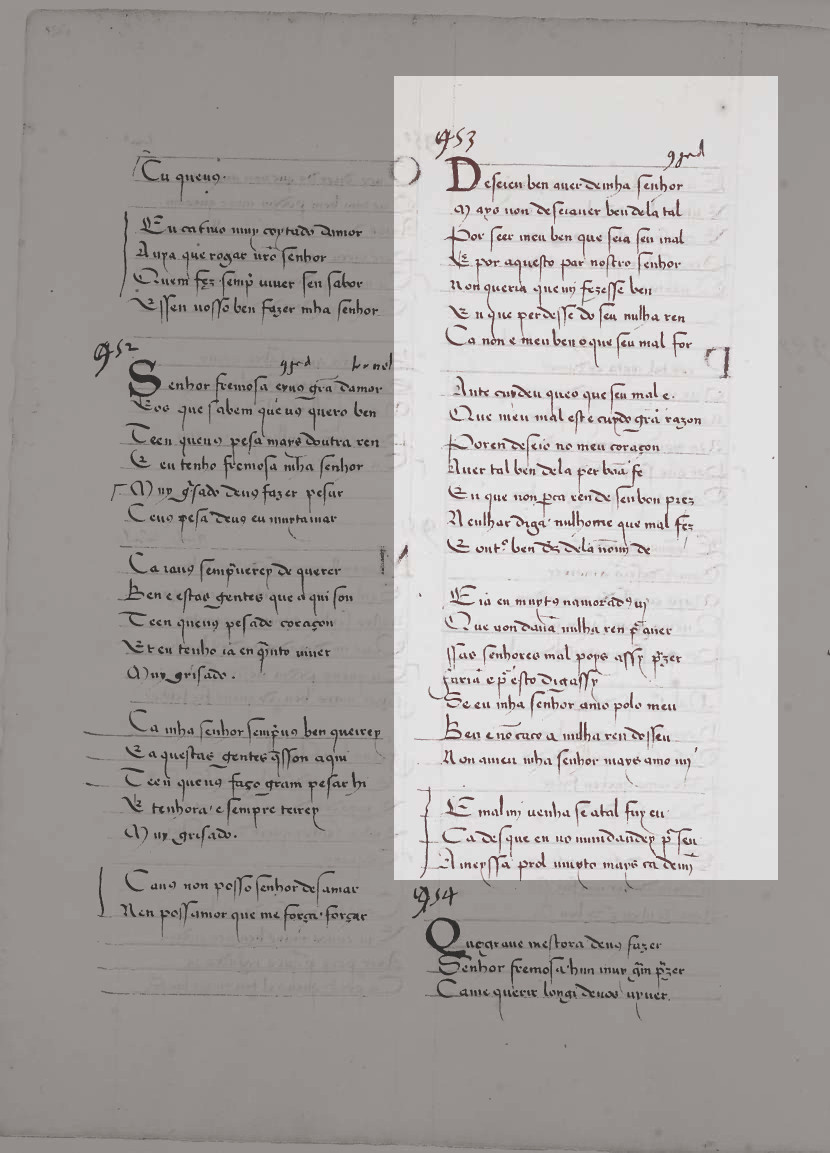 Tu queuꝯ.
Eu catiuo muy coytado damor
Aura que rogar ur̃o senhor
Quem fez semp̃ uiuer sen sabor
Essen uosso ben fazer mha senhor
452
Senhor fremosa
Eos que sabem que uꝯ quero ben
Teen queuꝯ pesa mays doutra ren
E eu tenho fremosa mh̃a senhor
Muy g̃sado deuꝯ fazer pesar
Ceuꝯ pesa deuꝯ eu muytamar
Ca iauꝯ semp̃uerey de querer
Ben e estas gentes que a qui son
Teen queuꝯ pesa de coraçon
Et eu tenho ia en q̃nto uiuer
Muy grisado.
Ca mha senhor semp̃uꝯ ben querrey
E a questas gentes q̃sson aqui
Teen queuꝯ faço gram pesar hi
E tenhora e sempre terrey
Muy grisado.
Cauꝯ non posso senhor desamar
Nen possamor que me força forçar
453
Deseieu ben auer demha senhor
Mays non deseiauer ben dela tal
Por seer meu ben que seia seu mal
E por aquesto par nostro senhor
Non queria que mi fezesse ben
En que perdesse do seu nulha ren
Ca non e meu ben o que seu mal for
Ante cuydeu queo que seu mal e.
Que meu mal est e cuydo gra razon
Poren deseio no meu coraçon
Auer tal ben dela per boã fe
En que non p̃ca ren de seu bon prez
Nen lhar diga nulhome que mal fez
E outº ben ds̃ dela nomi de
E ia eu muytꝯ namoradꝯ ui
Que non dauã nulha ren p̃ auer
ssas senhores mal poys assy p̃zer
faria e p̃ esto digassy
Se eu mha senhor amo polo meu
Ben e nõ cato a nulha ren do sseu
Non ameu mha senhor mays amo mi
E mal mi uenha se atal fuy eu
Ca des que eu no mundandey p̃ seu
Ameyssa prol muyto mays ca demĩ
454
Que graue mestora deuꝯ fazer
Senhor fremosa hun muy grãn p̃zer
Came querer longi de uos uyuer.